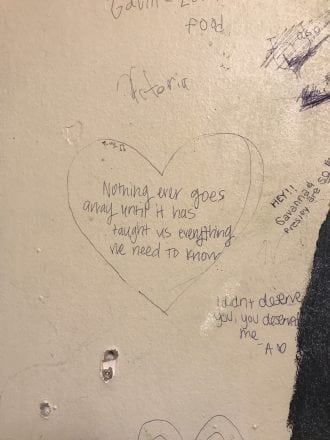 Food
Victoria
Nothing ever goes
array until it has
taught us everything
we need to know
HEY!!
Savannah
Presley are so
I didn't deserve
you, you deserve
me
-A